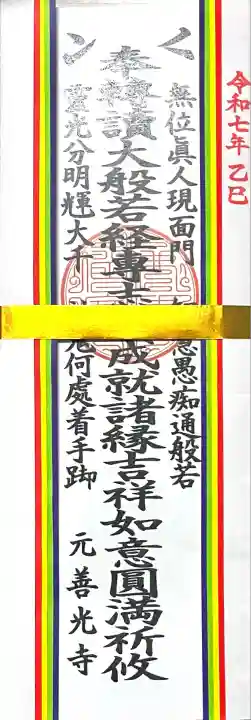 令和七年 乙巳
無位眞人現面門 愚痴通般若
奉轉讀大般若経専 成就諸縁吉祥如意圓満祈攸
靈光分明輝大千 何處着手脚
元善光寺